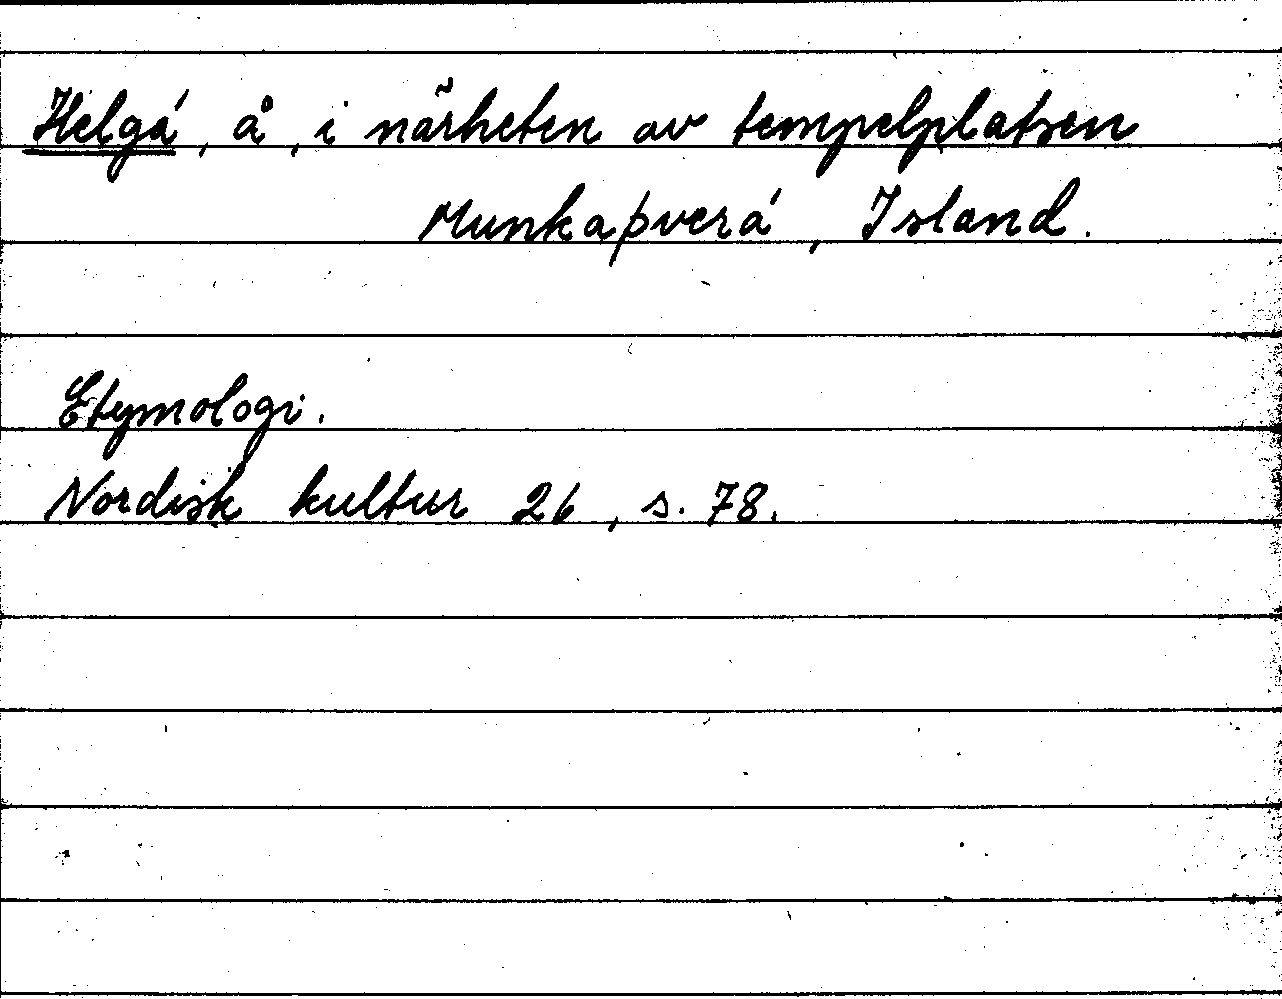 Helgá, å, i närheten av tempelplatsen
Munkaþverá, Island.
Etymologi.
Nordisk kultur 26, s. 78.